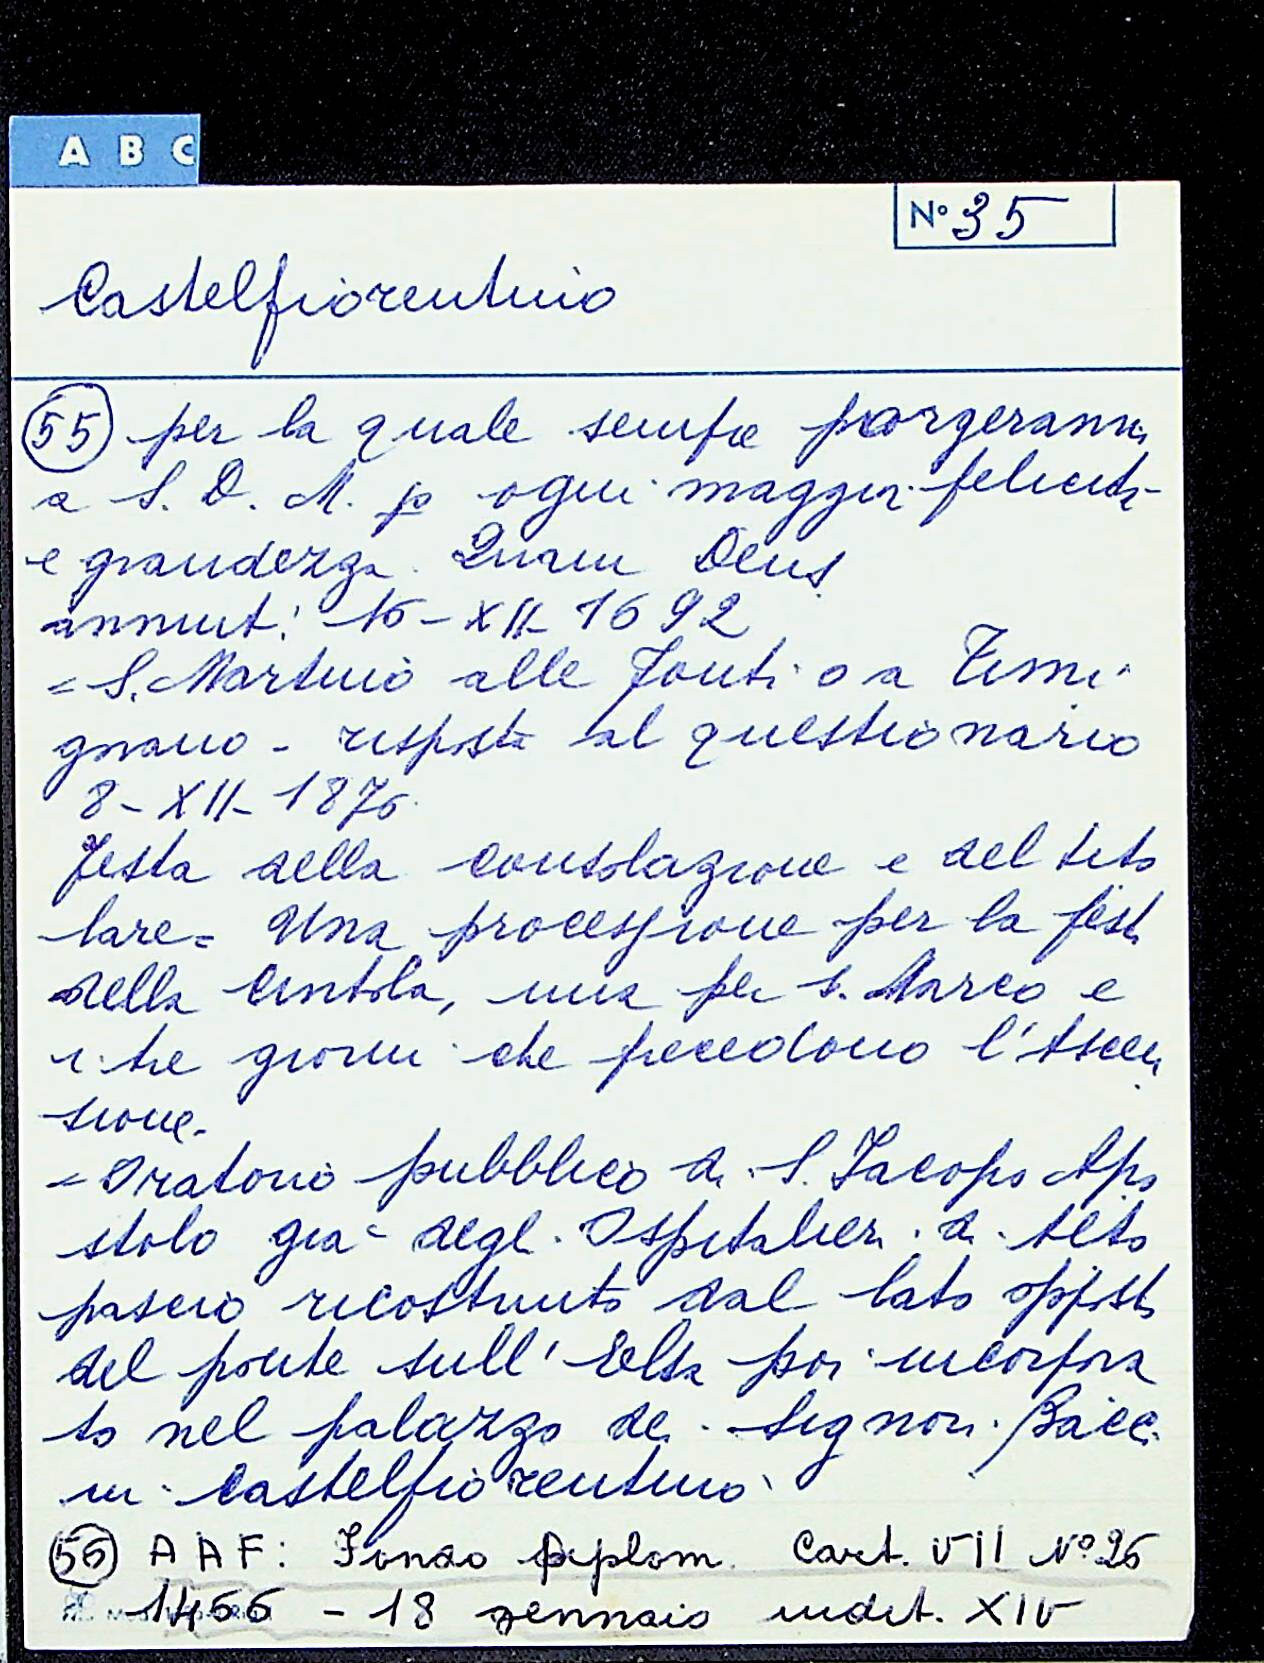 A B C
N° 35
Castelfiorentino
55 per la quale sempre porgeranno
a S. D. M. p ogni maggior felicità
e grandezza. Quam Deus
annuat! 16-XII-1692
= S. Martino alle Fonti o a Timi
gnano - risposte al questionario
8-XII-1876
Festa della Consolazione e del tito
lare = Una processione per la festa
della Cintola, una per S. Marco e
i tre giorni che precedono l'Ascen
sione.
= Oratorio pubblico di S. Jacopo Apo
stolo già degli Ospitalieri di Alto
pascio ricostruito dal lato opposto
del ponte sull'Elsa poi incorpora
to nel palazzo dei Signori Bacci
in Castelfiorentino
56 AAF: Fondo Diplom. Cart. VII N° 26
1466 - 18 gennaio indit. XIV